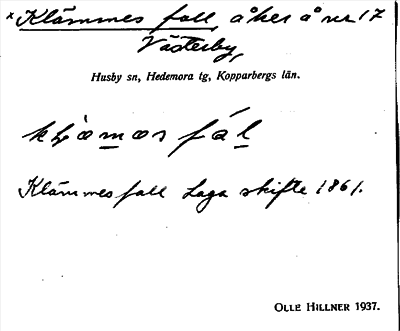 × Klämmes fall, åker å nr 17
Västerby,
Husby sn, Hedemora tg, Kopparbergs län.
Klämmesfall Laga skifte 1861.
OLLE HILLNER 1937.